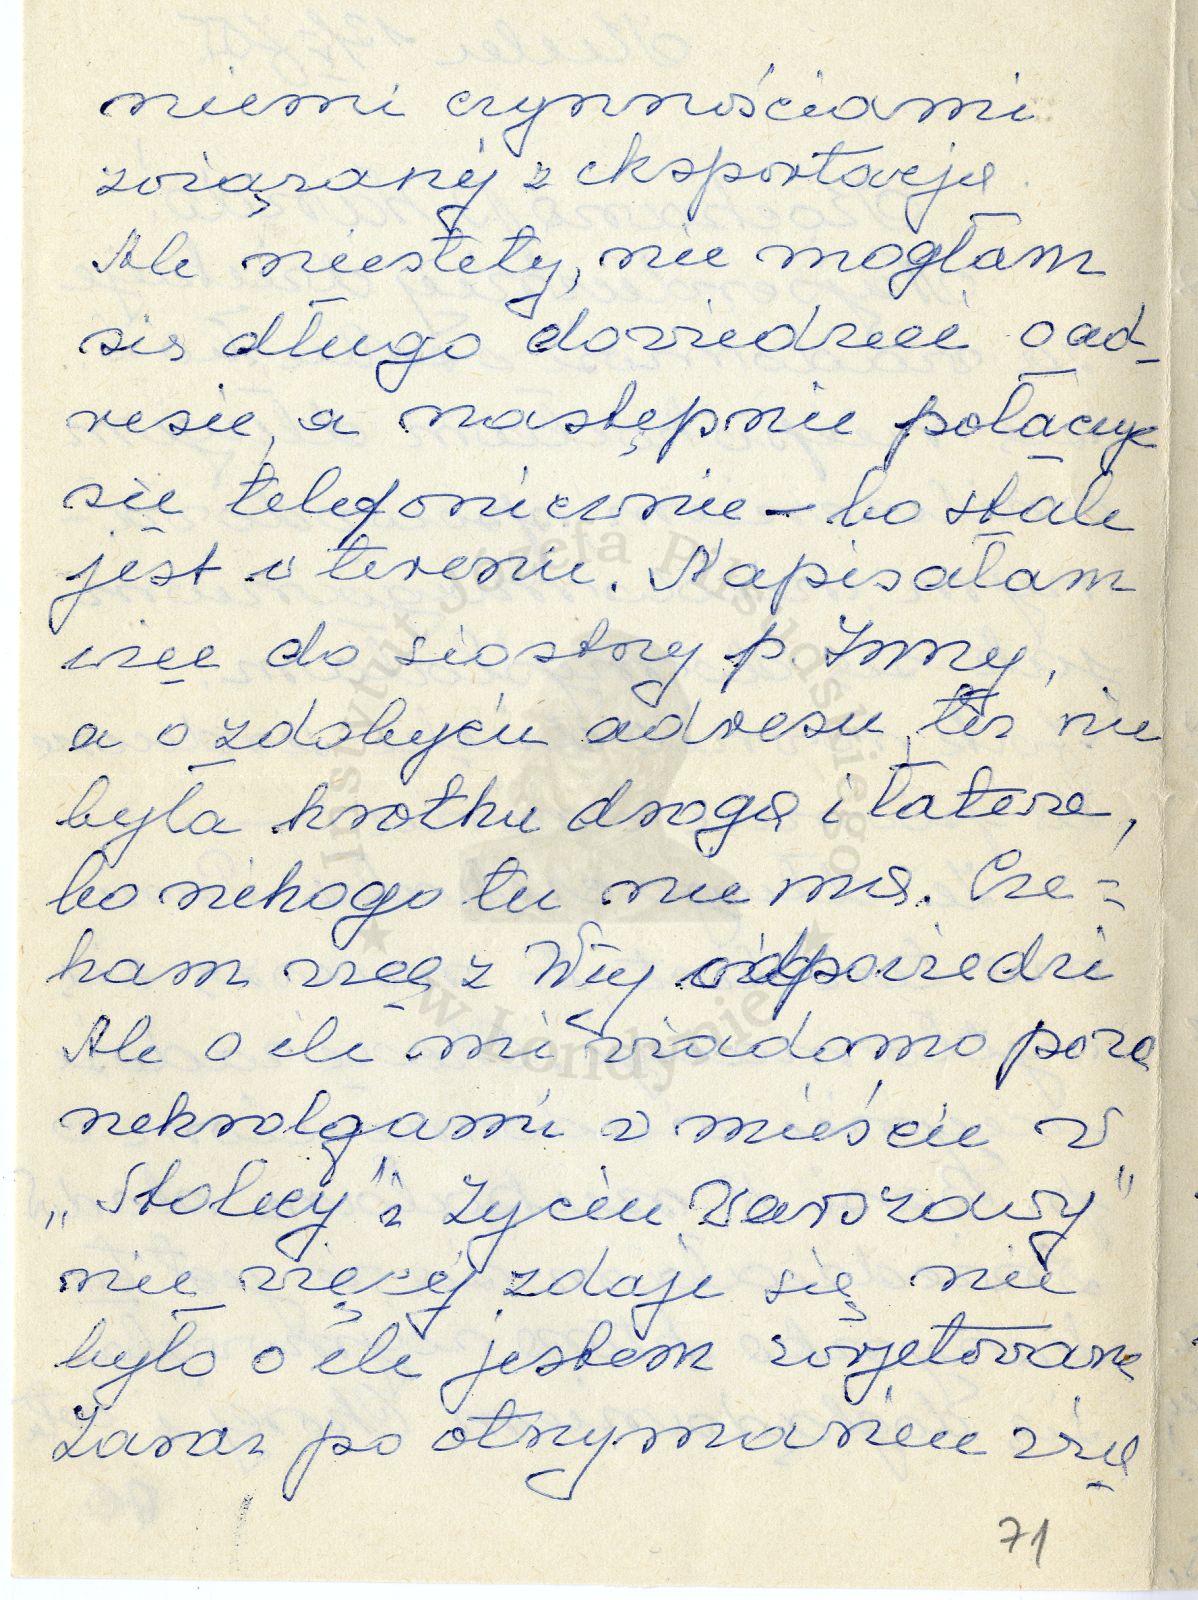 niemi czynnościami
związanej z eksportacją.
Ale niestety, nie mogłam
się długo dowiedzieć o ad-
resie, a następnie połączyć
się telefonicznie – bo stale
jest w terenie. Napisałam
więc do siostry p. Inny,
a o zdobyciu adresu też nie
była krótka droga i łatwa,
bo nikogo tu nie ma. Cze-
kam więc z Wię odpowiedzi
Ale o ile mi wiadomo poza
nekrologami w mieście w
„Stolicy" i Życiu Warszawy"
nic więcej zdaje się nie
było o ile jestem
Zaraz po otrzymaniu wię
71
Instytut Józefa Piłsudskiego
w Londynie